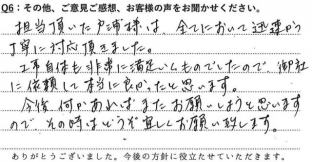 Q6：その他、ご意見ご感想、お客様の声をお聞かせください。
担当頂いた戸浦様は、全てにおいて迅速かつ
丁寧に対応頂きました。
工事自体も非常に満足いくものでしたので、御社
に依頼して本当に良かったと思います。
今後何かあればまたお願いしようと思います
ので、その時はどうぞ宜しくお願い致します。
ありがとうございました。今後の方針に役立たせていただきます。